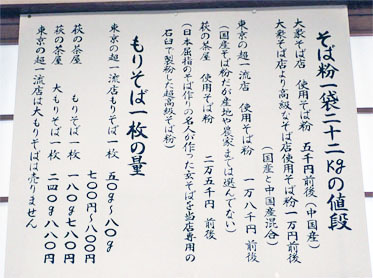 そば粉一袋二十二kgの値段
大衆そば店　使用そば粉　五千円前後（中国産）
大衆そば店より高級なそば店使用そば粉一万円前後
（国産と中国産混合）
東京の超一流店　使用そば粉　一万八千円前後
（国産そば粉だが産地や農家までは選んでない）
萩の茶屋　使用そば粉　二万五千円　前後
（日本屈指のそば作りの名人が作った玄そばを当店専用の
石臼で製粉した超高級そば粉）
もりそば一枚の量
東京の超一流店もりそば一枚　五〇g〜八〇g
七〇〇円〜八〇〇円
萩の茶屋　もりそば一枚　一八〇g七八〇円
萩の茶屋　大もりそば一枚　二四〇g八八〇円
東京の超一流店は大もりそばは売りません